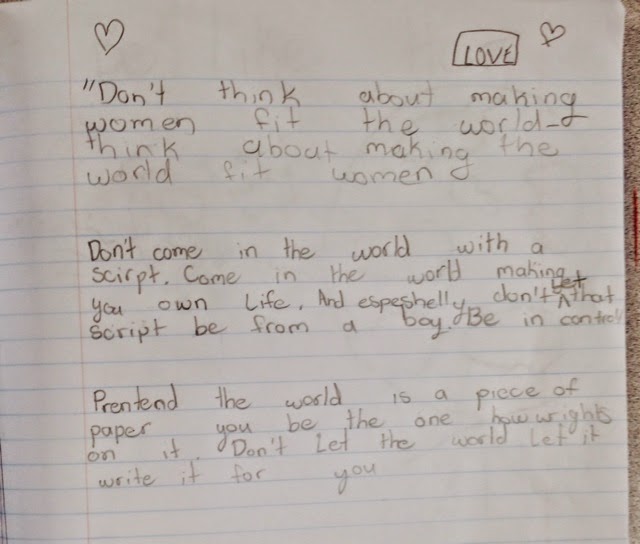 LOVE
"Don't think about making
women fit the world -
think about making the
world fit women
Don't come in the world with a
scirpt. Come in the world making
let
you own Life. And espeshelly don't ^ that
script be from a boy. Be in control
Prentend the world is a piece of
paper you be the one how wrights
on it. Don't Let the world Let it
write it for you